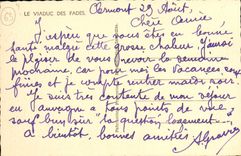 LE VIADUC DES FADES
Clermont 29 Août.
Chère Amie
J'espère que vous êtes en bonne
santé malgré cette grosse chaleur. J'aurai
le plaisir de vous revoir la semaine
prochaine, car pour moi les vacances sont
finies et je compte rentrer mardi soir
Je suis très contente de mon séjour
en Auvergne à tous points de vue,
sauf bien sûr la question logement
à bientôt, bonnes amitiés